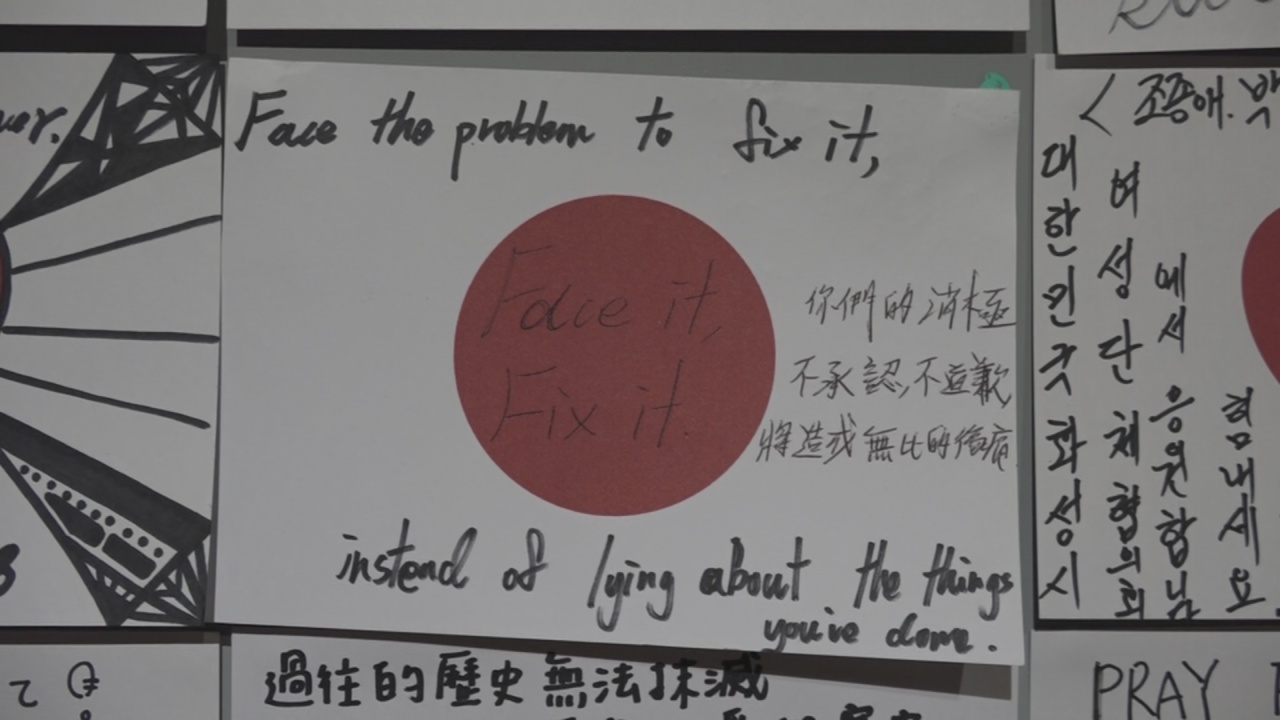 Face the problem to fix it,
Face it,
Fix it.
你們的消極
不承認,不道歉,
將造成無比的傷痛
instead of lying about the things
you've done.
過往的歷史無法抹滅
< 조종애. 박
대한민국 화성시
여성단체협의회
에서 응원합님
힘내세요
PRAY